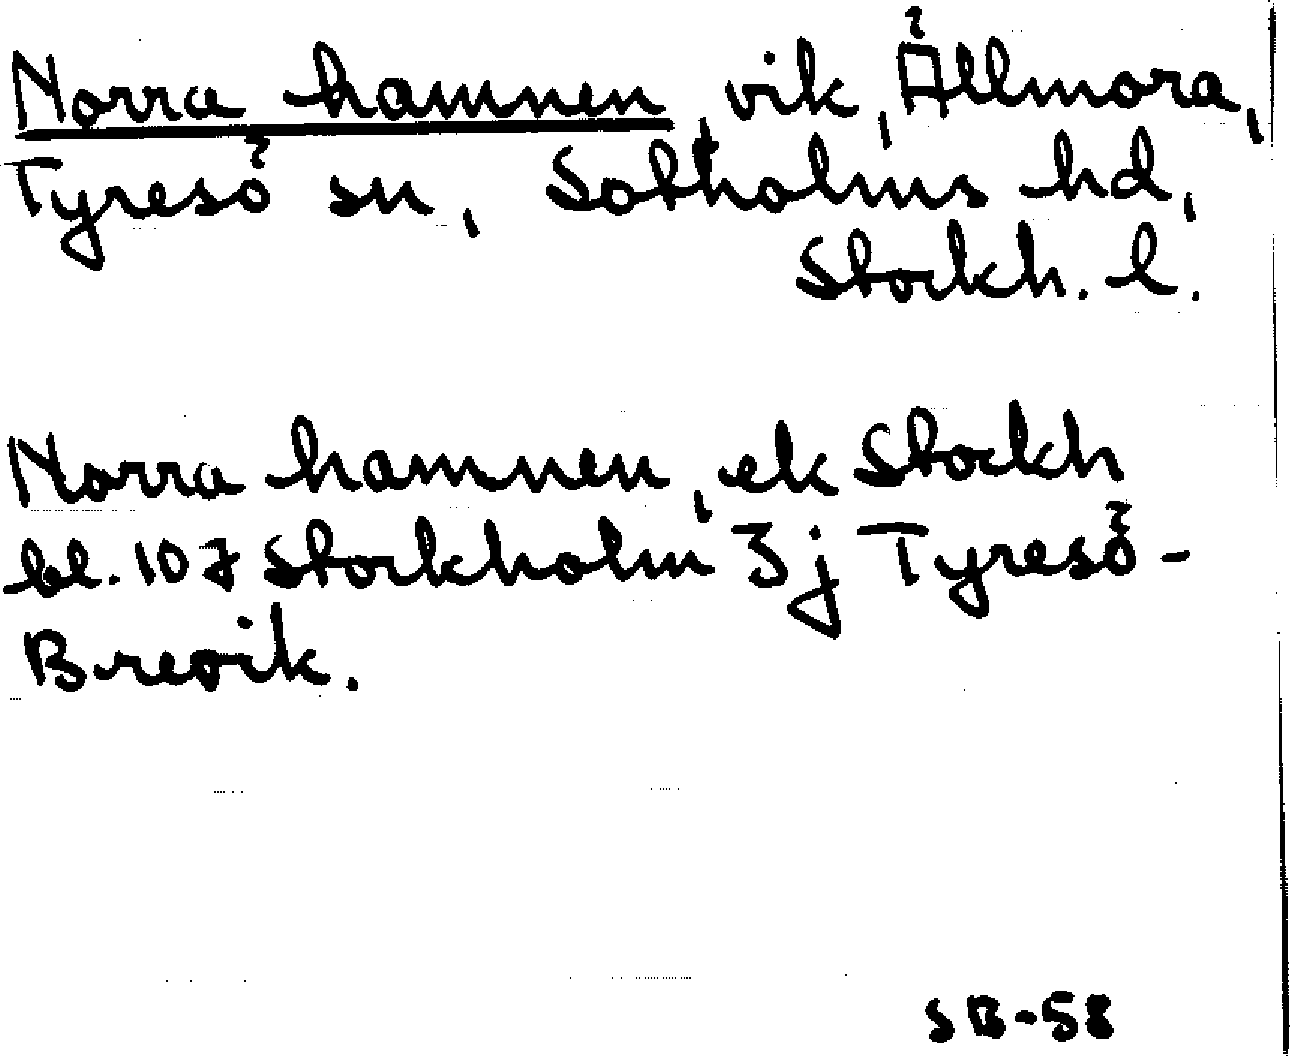 Norra hamnen, vik, Ällmora,
Tyresö sn, Sotholms hd,
Stockh. l.
Norra hamnen, ek Stockh
bl. 107 Stockholm 3j Tyresö-
Brevik.
SB-58